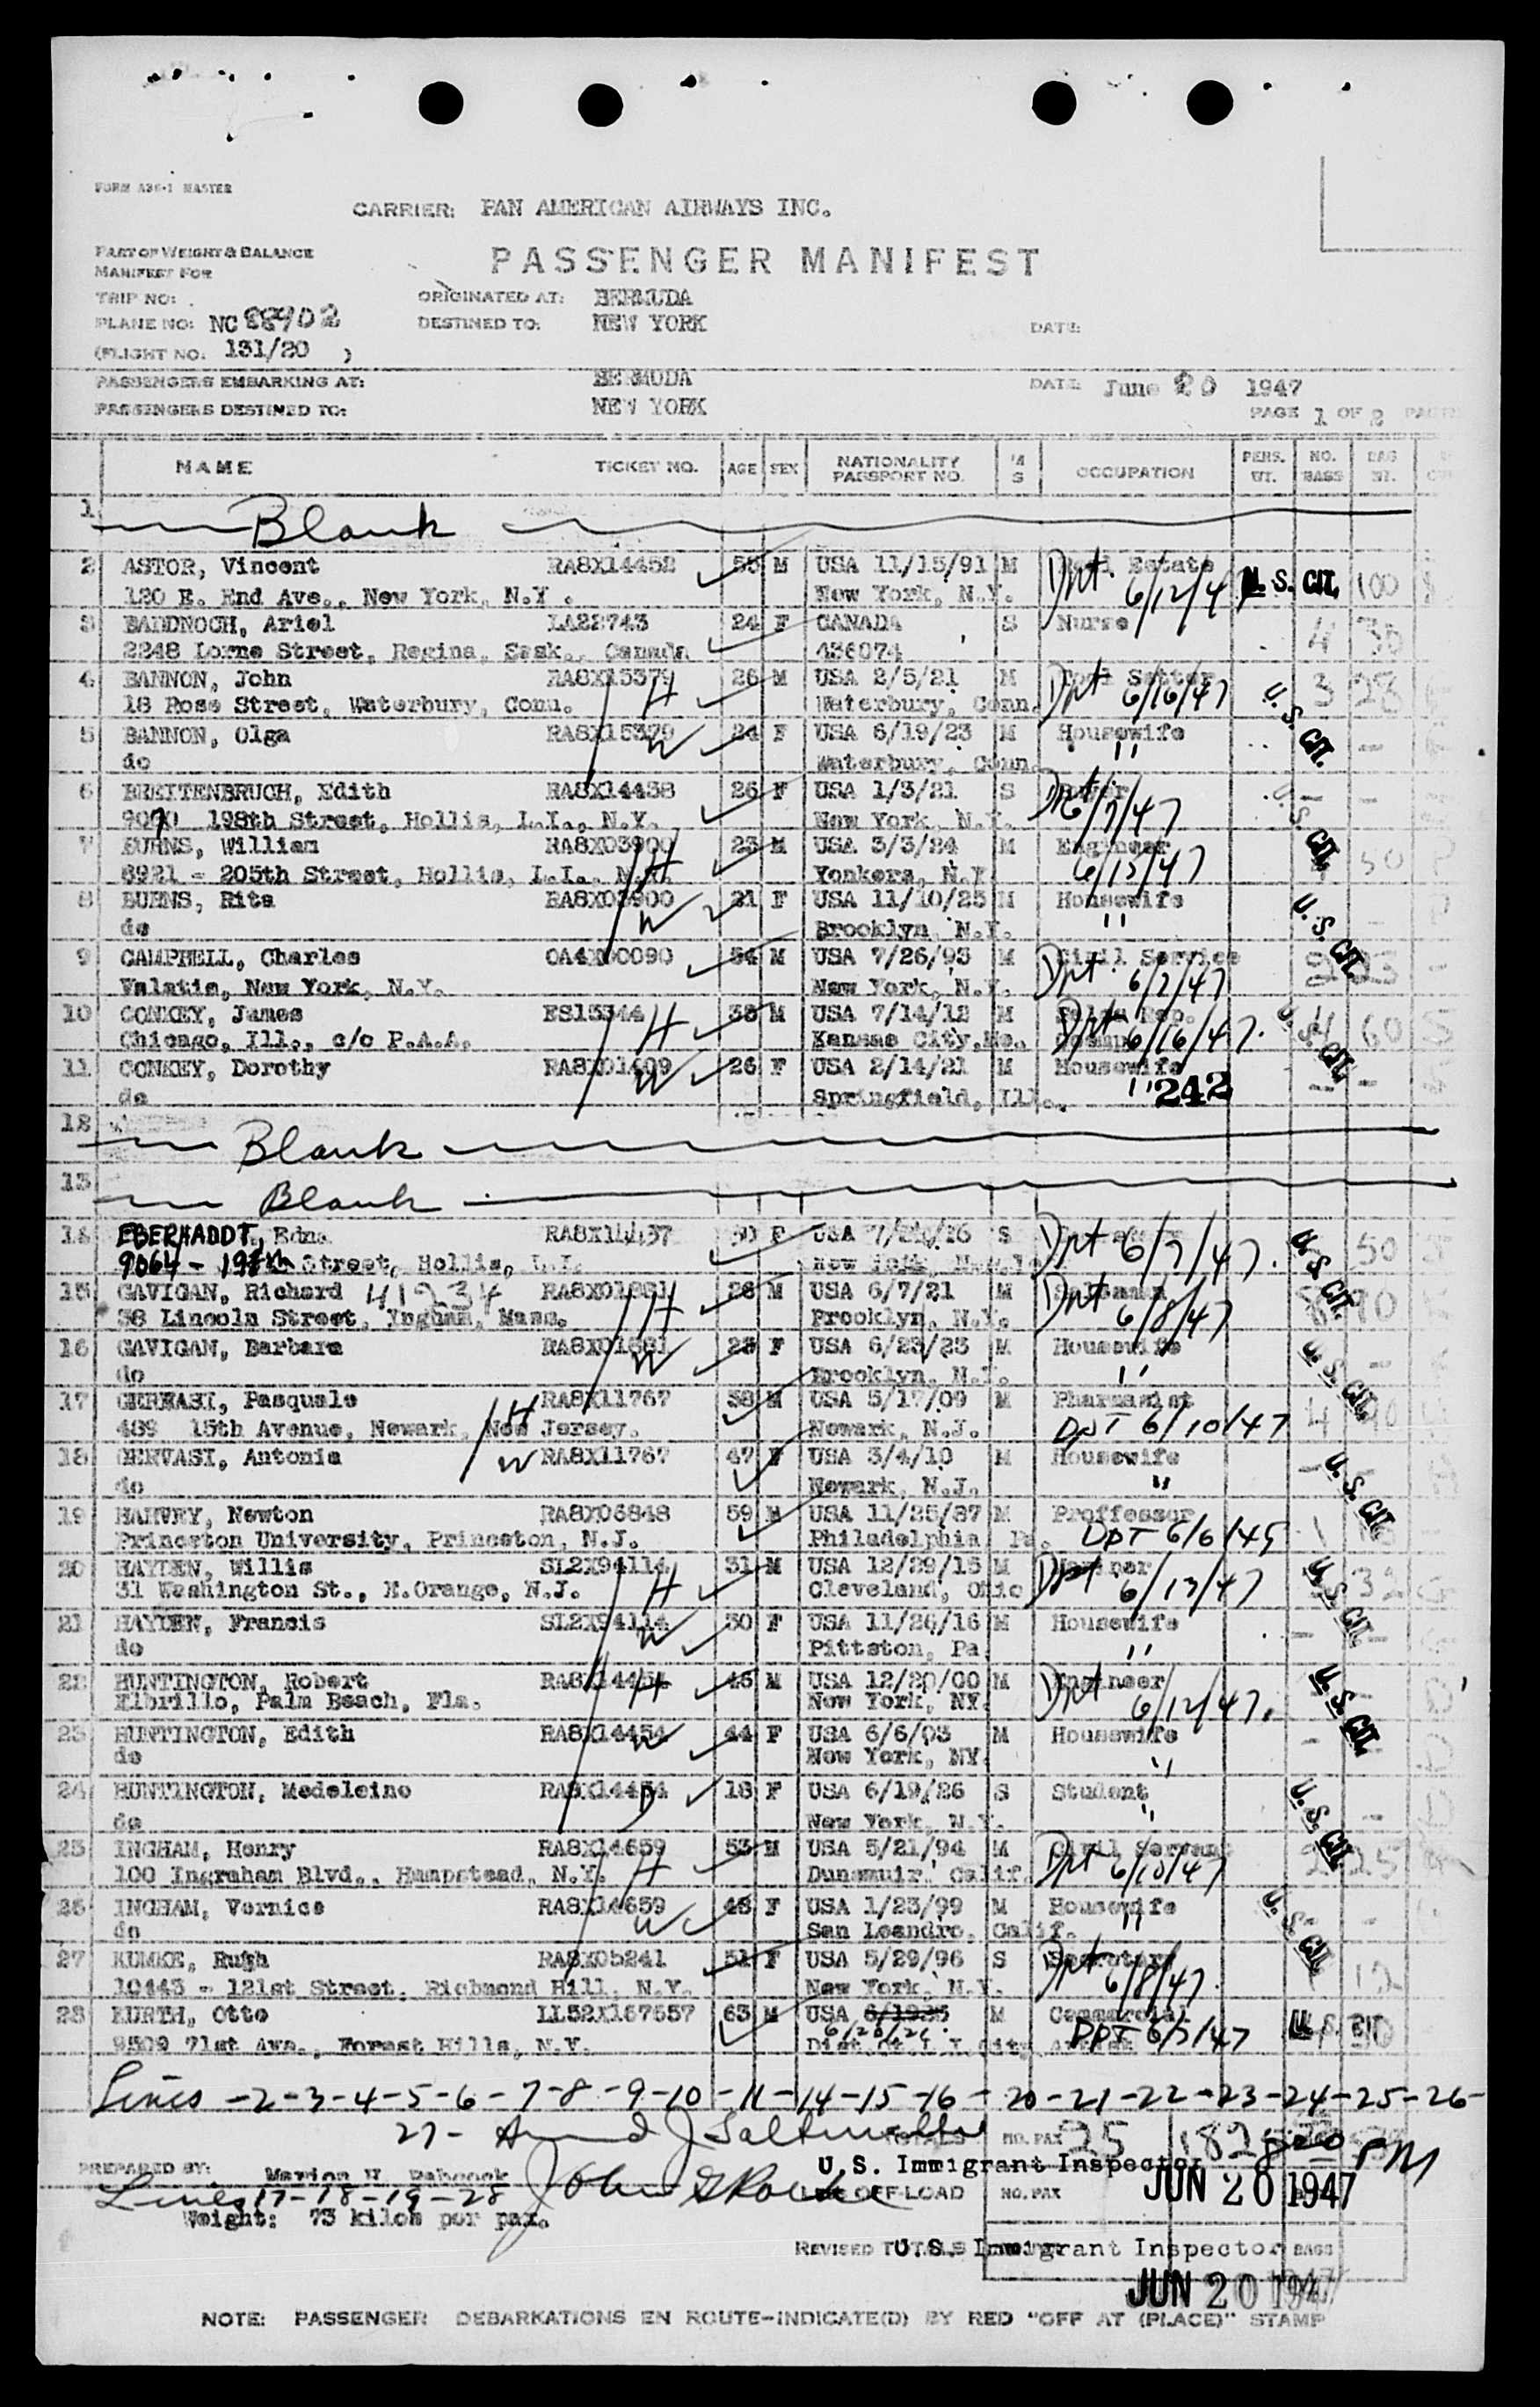 FORM A36-1 MASTER
CARRIER: PAN AMERICAN AIRWAYS INC.
PART OF WEIGHT & BALANCE
MANIFEST FOR
PASSENGER MANIFEST
TRIP NO: ORIGINATED AT: BERMUDA
PLANE NO: NC 88902 DESTINED TO: NEW YORK DATE:
(FLIGHT NO. 131/20 )
PASSENGERS EMBARKING AT: BERMUDA DATE June 20 1947
PASSENGERS DESTINED TO: NEW YORK
PAGE 1 OF 2
NAME TICKET NO. AGE SEX NATIONALITY PASSPORT NO. M S OCCUPATION PERS. WT. NO. BAGS BAG WT.
1 Blank
2 ASTOR, Vincent RA8X14452 55 M USA 11/15/91 M Real Estate U. S. CIT. 100
120 E. End Ave., New York, N.Y . New York, N.Y. Dpt. 6/12/47
3 BADDNOCH, Ariel LA22743 24 F CANADA S Nurse 4
2248 Lorne Street, Regina, Sask., Canada 436074
4 BANNON, John RA8X15379 H 26 M USA 2/5/21 M 3 28
18 Rose Street, Waterbury, Conn. Waterbury, Conn. Dpt 6/16/47 U. S. CIT.
5 BANNON, Olga RA8X15379 W 24 F USA 6/19/23 M Housewife -
do Waterbury, Conn. "
6 BREITENBRUCH, Edith RA8X14438 26 F USA 1/3/21 S - -
9070 198th Street, Hollis, L.I., N.Y. New York, N.Y. Dpt 6/7/47 U. S. CIT.
7 BURNS, William RA8X03900 H 23 M USA 3/3/24 M Engineer 50
8921 - 205th Street, Hollis, L.I., N.Y. Yonkers, N.Y. 6/13/47
8 BURNS, Rita RA8X03900 W 21 F USA 11/10/25 M Housewife U. S. CIT. -
do Brooklyn, N.Y. "
9 CAMPBELL, Charles 54 M USA 7/26/93 M Civil Service 2 23
Valatie, New York, N.Y. New York, N.Y. Dpt. 6/7/47
10 CONKEY, James ES15344 H 35 M USA 7/14/12 M Sales Rep. 4 60
Chicago, Ill., c/o P.A.A. Kansas City, Mo. Dpt 6/16/47. U. S. CIT.
11 CONKEY, Dorothy RA8X01409 W 26 F USA 2/14/21 M Housewife - -
do Springfield, Ill. " 242
12 Blank
13 Blank
14 EBERHADDT, Edna RA8X14437 30 F USA S 50
9064 - 198th Street, Hollis, L.I. New York, N.Y. Dpt 6/7/47. U. S. CIT.
15 GAVIGAN, Richard 41234 RA8X01881 H 26 M USA 6/7/21 M Salesman
38 Lincoln Street, Mass. Brooklyn, N.Y. Dpt 6/8/47
16 GAVIGAN, Barbara RA8X01881 W 23 F USA 6/23/23 M Housewife -
do Brooklyn, N.Y. " U. S. CIT.
17 GERVASI, Pasquale H RA8X11767 38 M USA 5/17/09 M Pharmacist 4
489 15th Avenue, Newark, New Jersey. Newark, N.J. DPT 6/10/47
18 GERVASI, Antonia W RA8X11767 47 F USA 3/4/10 M Housewife -
do Newark, N.J. " U. S. CIT.
19 HARVEY, Newton RA8X06848 59 M USA 11/25/87 M Proffessor 1
Princeton University, Princeton, N.J. Philadelphia Pa. DPT 6/6/45
20 HAYDEN, Willis SL2X94114 H 31 M USA 12/29/15 M 32
31 Washington St., E.Orange, N.J. Cleveland, Ohio Dpt 6/13/47 U. S. CIT.
21 HAYDEN, Francis SL2X94114 W 30 F USA 11/26/16 M Housewife - -
do Pittston, Pa "
22 HUNTINGTON, Robert RA8X14454 H 46 M USA 12/20/00 M Engineer
Elbrillo, Palm Beach, Fla. New York, NY. Dpt 6/12/47. U. S. CIT.
23 HUNTINGTON, Edith RA8X14454 W 44 F USA 6/6/03 M Housewife -
do New York, NY. "
24 HUNTINGTON, Medeleine RA8X14454 D 18 F USA 6/19/26 S Student -
do New York, N.Y. " U. S. CIT.
25 INGHAM, Henry RA8X14659 H 53 M USA 5/21/94 M Civil Servant 2 25
100 Ingraham Blvd., Hempstead, N.Y. Dunsmuir, Calif. Dpt 6/10/47
26 INGHAM, Vernice RA8X14659 W 48 F USA 1/23/99 M Housewife - -
do San Leandro, Calif. " U. S. CIT.
27 KUMKE, Ruth RA8X05241 51 F USA 5/29/96 S Secretary 12
10443 - 121st Street, Richmond Hill, N.Y. New York, N.Y. Dpt 6/8/47.
28 KURTH, Otto LL52X167557 63 M USA 6/1925 M Commercial U. S. CIT. 30
9509 71st Ave., Forest Hills, N.Y. Dist.Ct.L.I.City Artist DPT 6/7/47
Lines -2-3-4-5-6-7-8-9-10-11-14-15-16-20-21-22-23-24-25-26-
27-
TOTALS NO. PAX 25 182 PM
PREPARED BY: Marion H. Babcock U.S. Immigrant Inspector
Lines 17-18-19-28 OFF-LOAD NO. PAX JUN 20 1947
Weight: 73 kilos per pax.
REVISED TOTALS U.S. Immigrant Inspector BAGS
JUN 20 1947
NOTE: PASSENGER DEBARKATIONS EN ROUTE-INDICATE(D) BY RED "OFF AT (PLACE)" STAMP